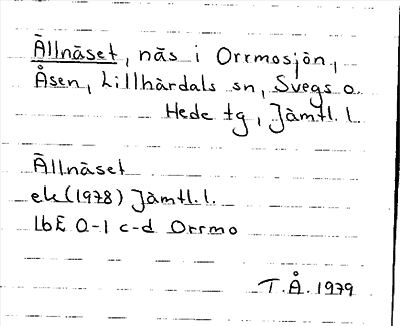 Ällnäset, näs i Orrmosjön,
Åsen, Lillhärdals sn, Svegs o.
Hede tg, Jämtl. l.
Ällnäset
ek (1978) Jämtl. l.
16E 0-1 c-d Orrmo
T.Å. 1979